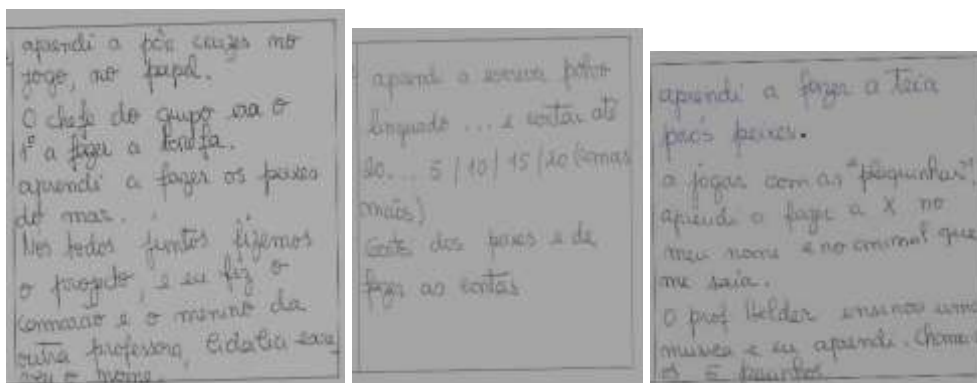 aprendi a pôr cruzes no
jogo, no papel.
O chefe do grupo era o
1º a fazer a tarefa.
aprendi a fazer os peixes
do mar.
Nos todos juntos fizemos
o projecto, e eu fiz o
camarão e o menino da
outra professora, Cidalia escre
veu o nome.
aprendi a escrever polvo
linguado ... e contar até
20... 5 / 10 / 15 / 20 (
mais)
Gostei dos peixes e de
fazer as contas
aprendi a fazer a teia
prós peixes.
a jogar com as "
aprendi a fazer a X no
meu nome e no animal que
me saía.
O prof Helder ensinou uma
musica e eu aprendi. Chama
os 5